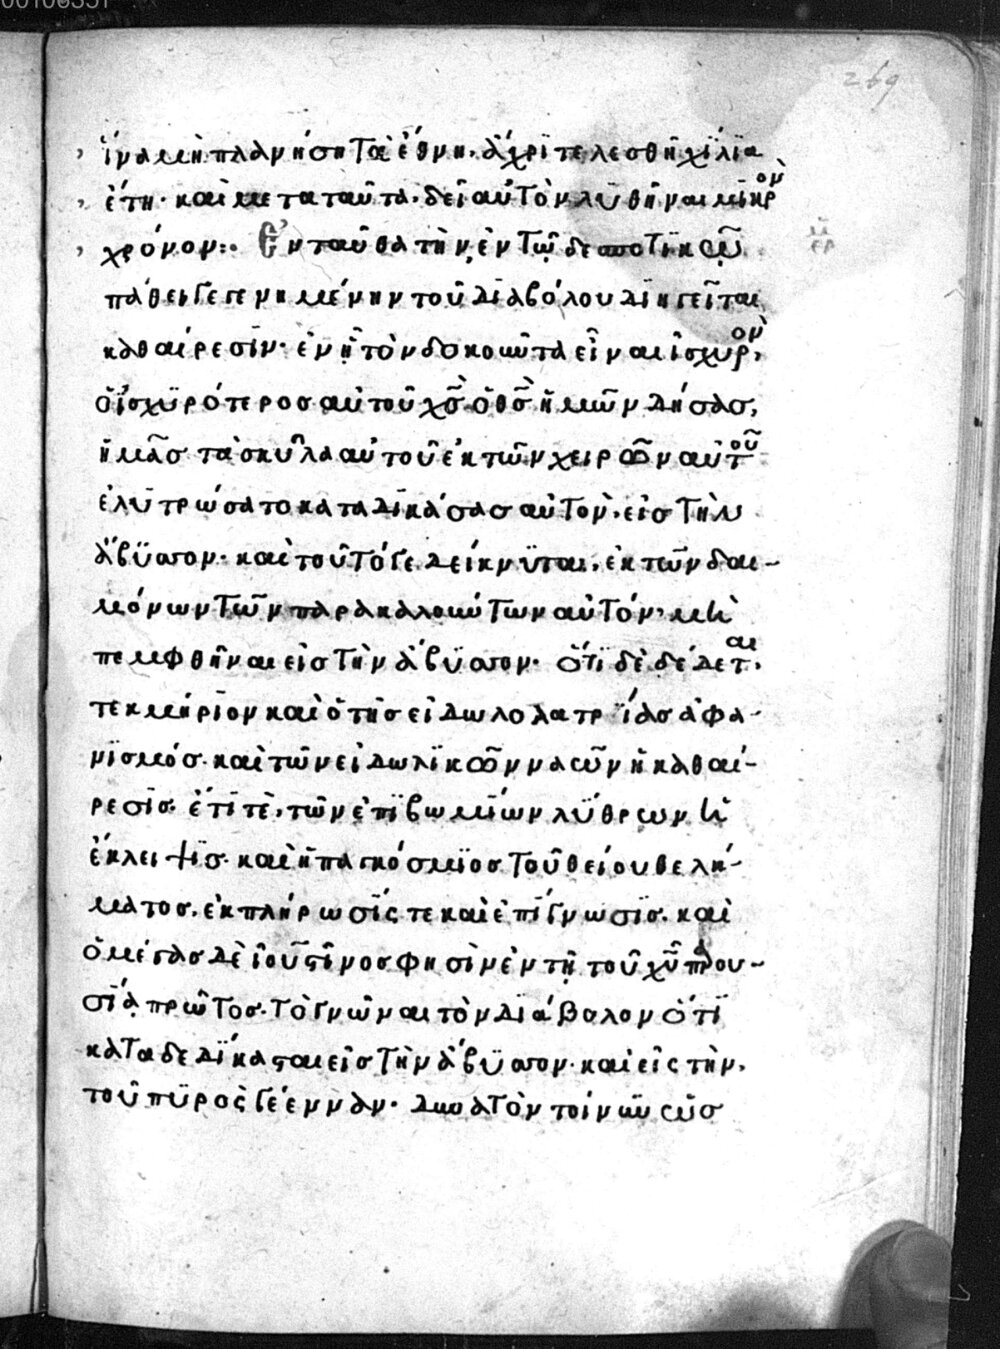 00100351
269
ἵνα μὴ πλανήση τὰ ἔθνη. ἄχρι τελεσθῆ χίλια
ἔτη· καὶ μετα ταῦτα. δεῖ αὐτὸν λυθῆναι μικρὸν
χρόνον:· Ἐνταῦθα τὴν, ἐν τῶ δεσποτικῶ
πάθει γεγενημένην τοῦ διαβόλου διηγεῖται
καθαίρεσιν· ἐν ἧ τὸν δοκοῦντα εἶναι ἰσχυρὸν,
ὁ ἰσχυρότερος αὐτοῦ χς ὁ θς ἡμῶν δήσας,
ἡμᾶς τὰ σκῦλα αὐτοῦ ἐκ τῶν χειρῶν αὐτοῦ
ἐλυτρώσατο καταδικάσας αὐτὸν. εἰς τὴν
ἄβυσσον· καὶ τοῦτό γε δείκνυται. ἐκ τῶν δαι-
μόνων τῶν παρακαλούντων αὐτόν, μὴ
πεμφθῆναι εἰς τὴν ἄβυσσον· ὅτι δὲ δέδεται.
τεκμήριον καὶ ὁ τῆς εἰδωλολατρίας ἀφα-
νισμός. καὶ τῶν εἰδωλικῶν ναῶν ἡ καθαί-
ρεσις. ἔτι τὲ, τῶν ἐπιβωμίων λύθρων ἡ
ἔκλειψις. καὶ ἡ παγκόσμιος τοῦ θείου θελή-
ματος. ἐκπλήρωσίς τε καὶ ἐπίγνωσις. καὶ
ὁ μέγας δὲ ἰουστῖνος φησὶν ἐν τῆ τοῦ χυ παρου-
σία πρῶτος. τὸ γνῶναι τὸν διάβολον ὅτι
καταδεδίκασται εἰς τὴν ἄβυσσον· καὶ εἰς τὴν,
τοῦ πυρὸς γέενναν.